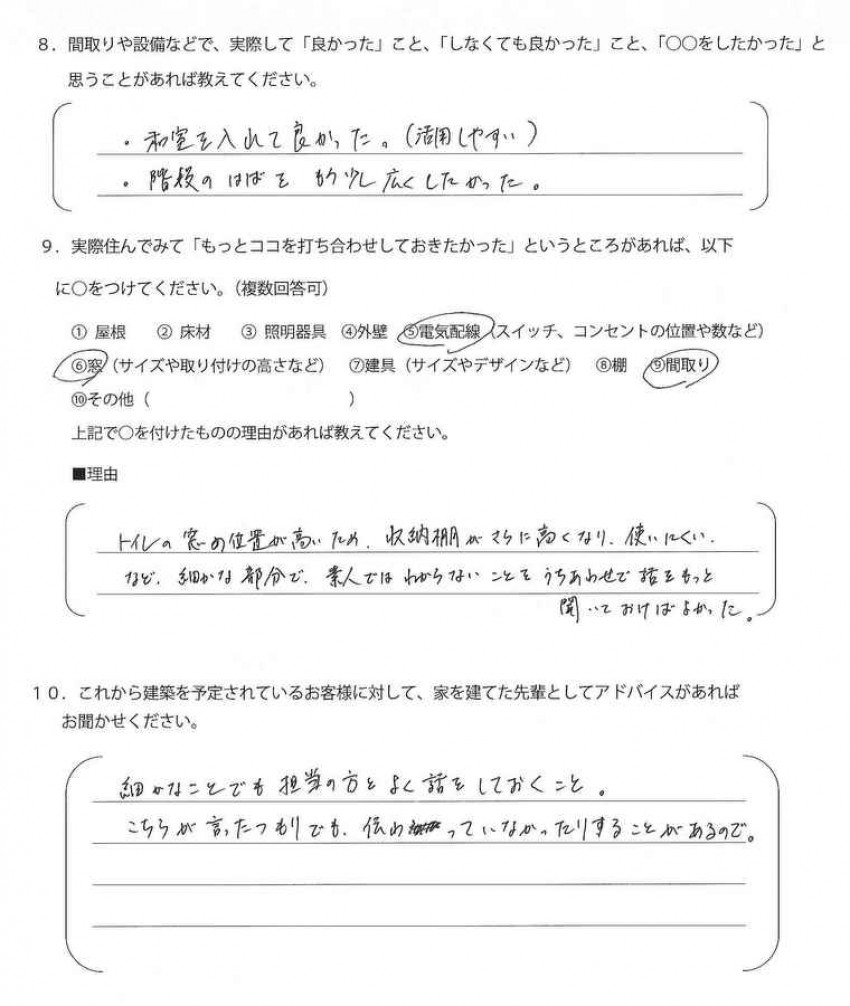 ８．間取りや設備などで、実際して「良かった」こと、「しなくても良かった」こと、「〇〇をしたかった」と
思うことがあれば教えてください。
・和室を入れて良かった。(活用しやすい)
・階段のはばを もう少し広くしたかった。
９．実際住んでみて「もっとココを打ち合わせしておきたかった」というところがあれば、以下
に〇をつけてください。（複数回答可）
① 屋根　② 床材　③ 照明器具　④外壁　⑤電気配線（スイッチ、コンセントの位置や数など）
⑥窓（サイズや取り付けの高さなど）　⑦建具（サイズやデザインなど）　⑧棚　⑨間取り
⑩その他（　　　　　　　　　　　　）
上記で〇を付けたものの理由があれば教えてください。
■理由
トイレの窓の位置が高いため、収納棚がさらに高くなり、使いにくい、
など、細かな部分で、素人ではわからないことをうちあわせで話をもっと
聞いておけばよかった。
１０．これから建築を予定されているお客様に対して、家を建てた先輩としてアドバイスがあれば
お聞かせください。
細かなことでも担当の方とよく話をしておくこと。
こちらが言ったつもりでも、伝わっていなかったりすることがあるので。